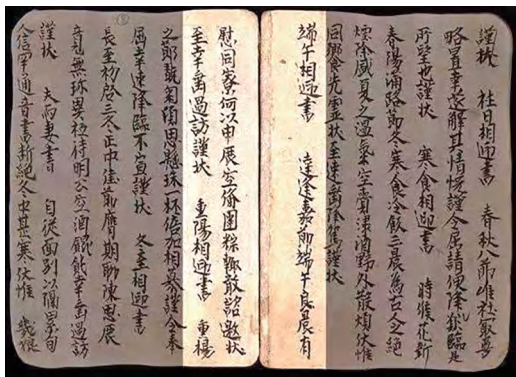 謹狀 社日相迎書 春秋八節唯社最尊
略置解其情懷謹令屈請便降臨是
所望也謹狀 寒食相迎書 時候花新
春陽滿路節冬寒食冷飲三晨為古人之絕
煙除盛夏之温氣空賫淥酒野外散煩伏惟
同饗先靈狀至速垂降駕謹狀
端午相迎書 逢嘉節端午良晨有
慰同家何以申展空備團粽輒敢諮邀狀
至幸垂過訪謹狀 重陽相迎書 重楊
之節玩菊傾思懸珠一杯倍加相慕謹令奉
屈幸速降臨不宣謹狀 冬至相迎書
長至初啓三冬正中佳節膺期聊陳思展
竟無珍異秖待明公空酒餛飩幸垂過訪
謹狀 夫与妻書 自從面別以隔累旬
人信罕通音書斷絕冬中甚寒伏惟 幾娘